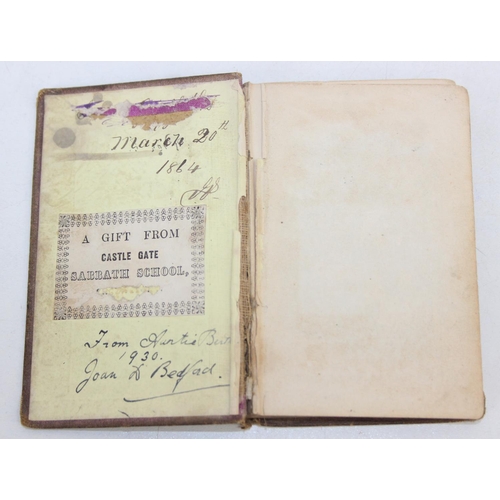 March 20th
1864
A GIFT FROM
CASTLE GATE
SABBATH SCHOOL,
From Auntie
1930.
Joan D Bedford.